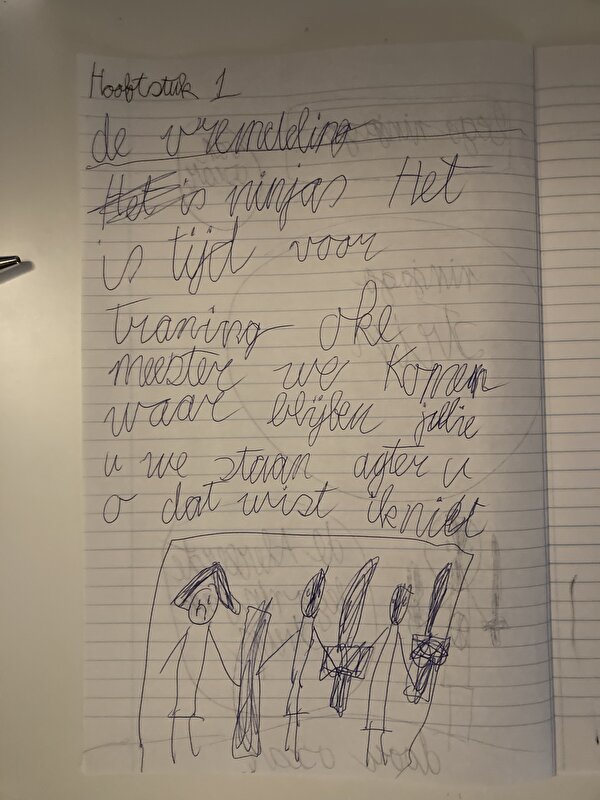 Hooftstuk 1
de vremdeling
is ninjas Het
is tijd voor
traning oke
meester we komen
waar blijben jullie
u we staan agter u
o dat wist ik niet